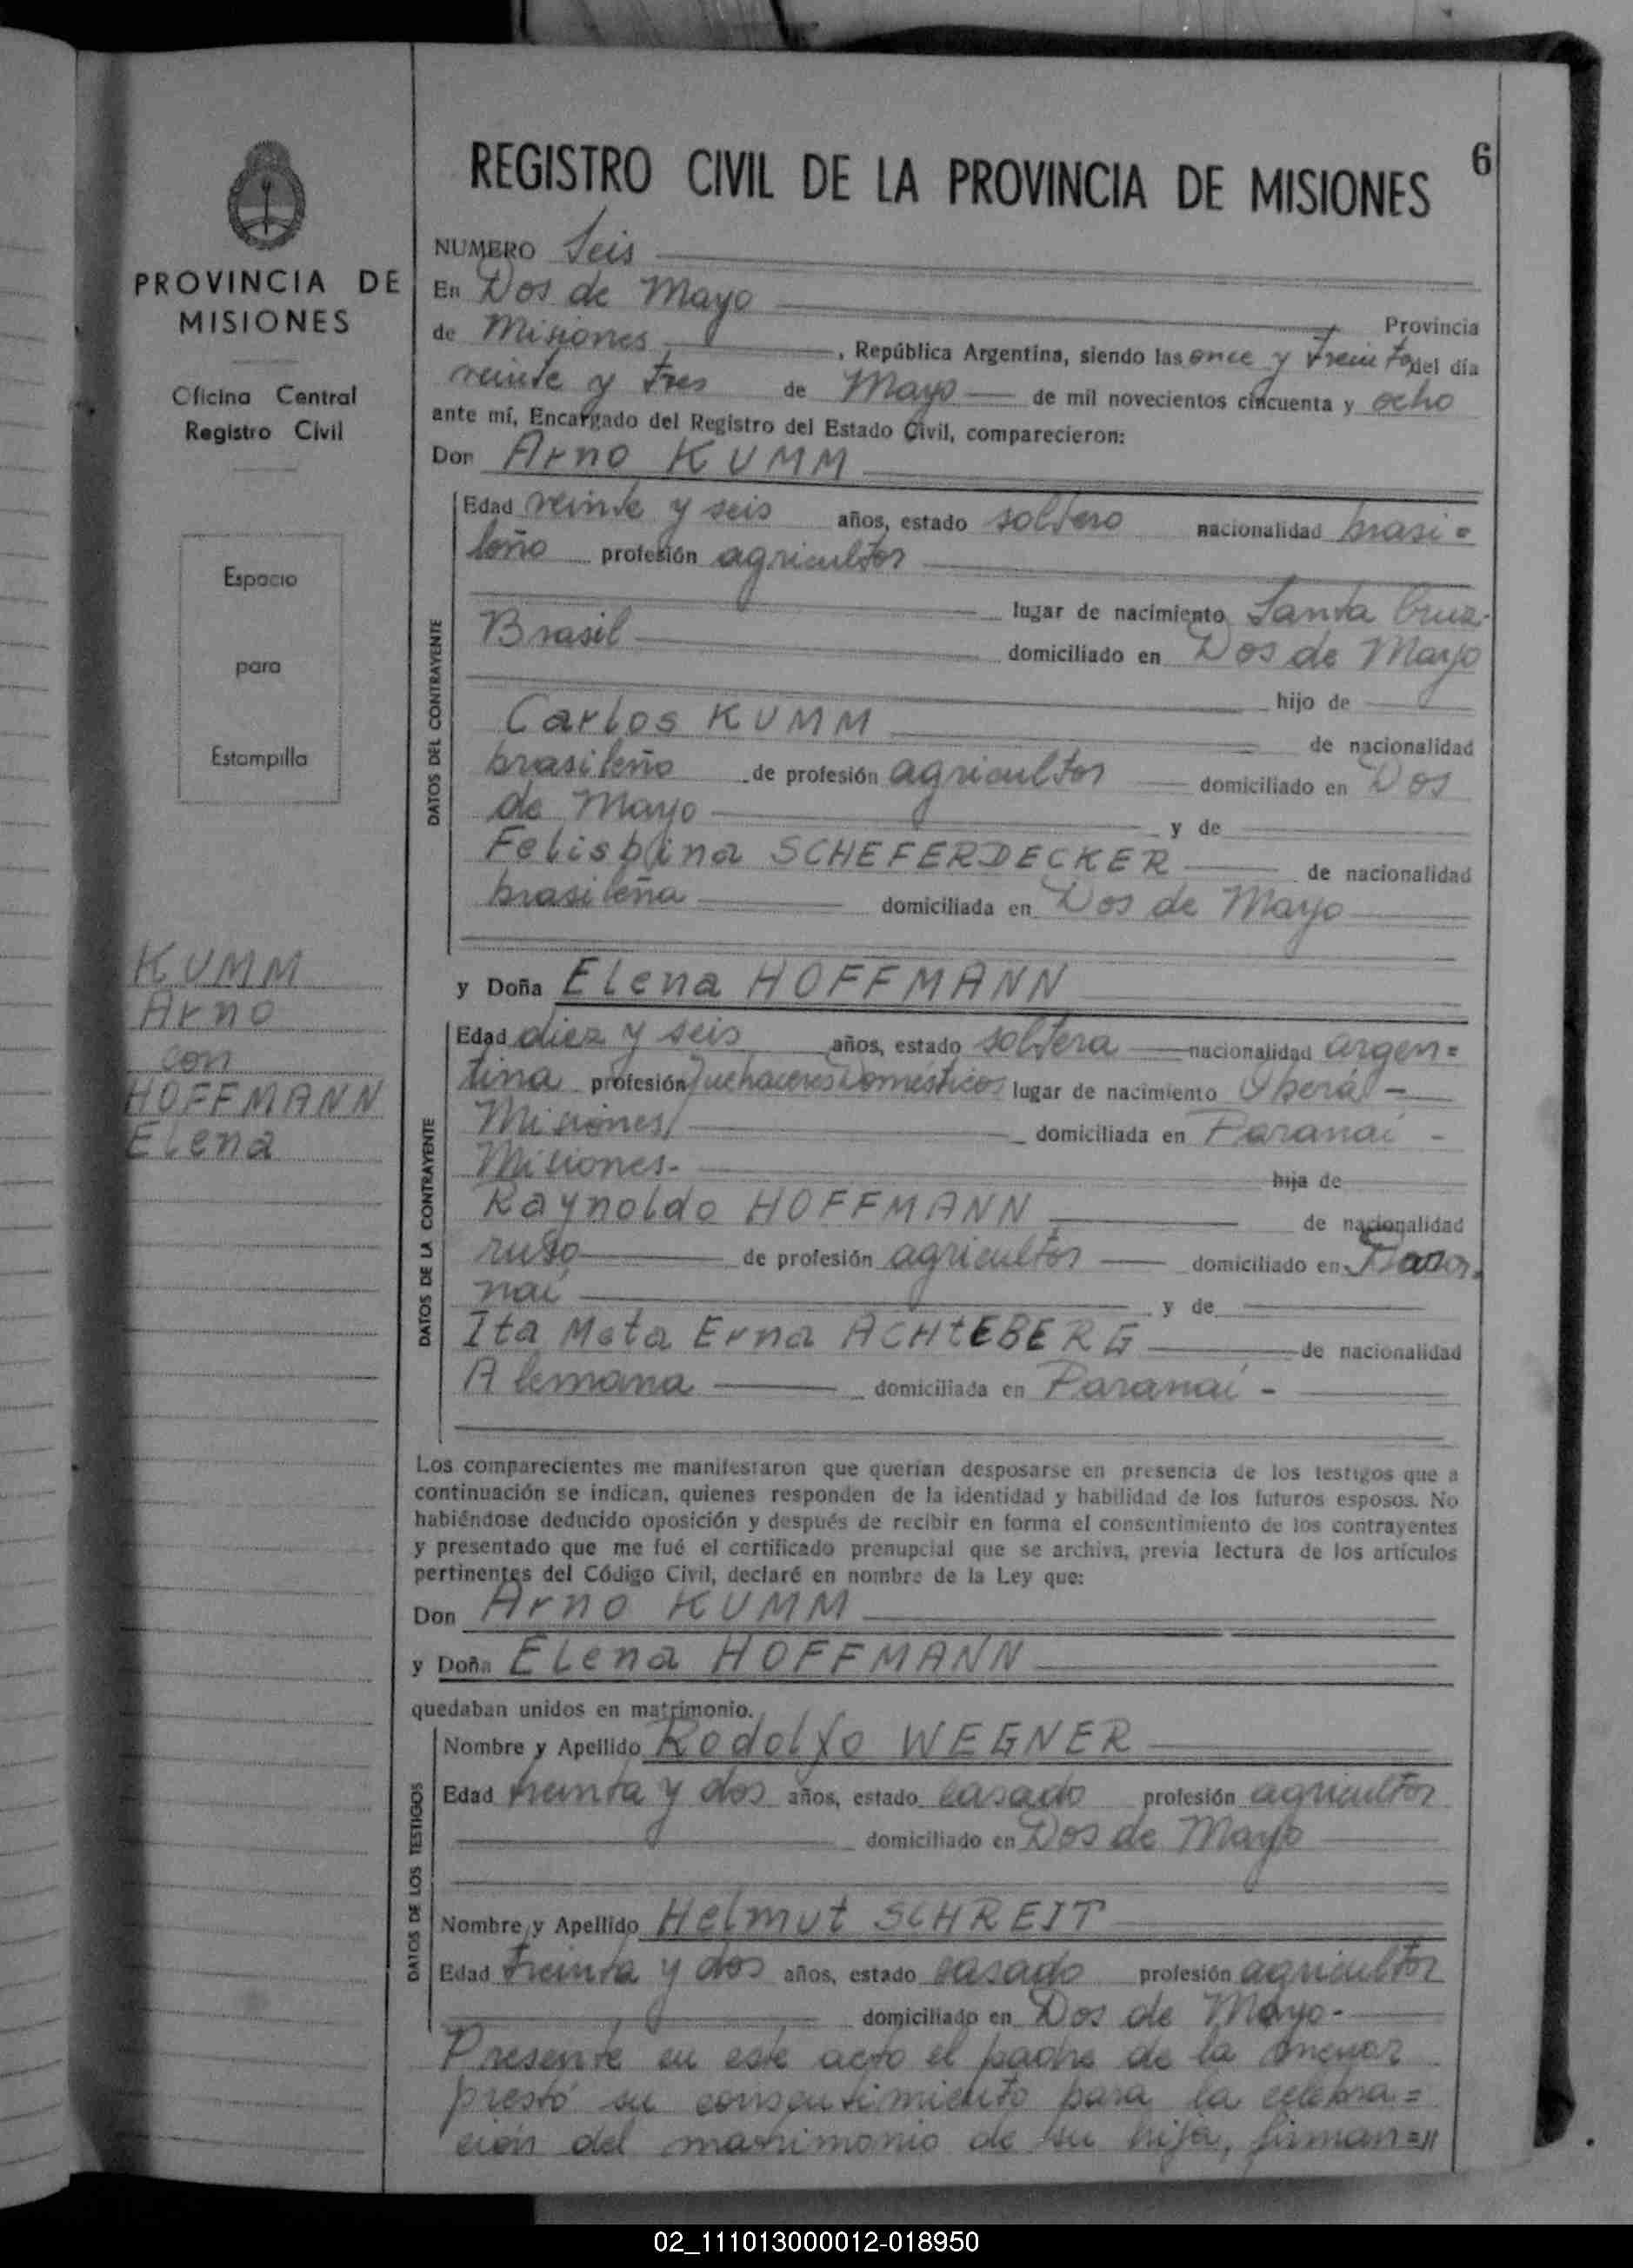 6
REGISTRO CIVIL DE LA PROVINCIA DE MISIONES
PROVINCIA DE
MISIONES
Oficina Central
Registro Civil
Espacio
para
Estampilla
KUMM
Arno
con
HOFFMANN
Elena
NUMERO Seis
En Dos de Mayo Provincia
de Misiones, República Argentina, siendo las once y treinta del día
veinte y tres de Mayo de mil novecientos cincuenta y ocho
ante mí, Encargado del Registro del Estado Civil, comparecieron:
Don Arno KUMM
DATOS DEL CONTRAYENTE
Edad veinte y seis años, estado soltero nacionalidad brasi=
leño profesión agricultor
lugar de nacimiento Santa Cruz-
Brasil domiciliado en Dos de Mayo
hijo de
Carlos KUMM de nacionalidad
brasileño de profesión agricultor domiciliado en Dos
de Mayo y de
Felisbina SCHEFERDECKER de nacionalidad
brasileña domiciliada en Dos de Mayo
y Doña Elena HOFFMANN
DATOS DE LA CONTRAYENTE
Edad diez y seis años, estado soltera nacionalidad argen=
tina profesión Quehaceres Domésticos lugar de nacimiento Oberá -
Misiones domiciliada en Paranaí -
Misiones.- hija de
Raynoldo HOFFMANN de nacionalidad
ruso de profesión agricultor domiciliado en Para-
naí y de
Ita Meta Erna ACHtEBERG de nacionalidad
Alemana domiciliada en Paranaí -
Los comparecientes me manifestaron que querían desposarse en presencia de los testigos que a
continuación se indican, quienes responden de la identidad y habilidad de los futuros esposos. No
habiéndose deducido oposición y después de recibir en forma el consentimiento de los contrayentes
y presentado que me fué el certificado prenupcial que se archiva, previa lectura de los artículos
pertinentes del Código Civil, declaré en nombre de la Ley que:
Don Arno KUMM
y Doña Elena HOFFMANN
quedaban unidos en matrimonio.
DATOS DE LOS TESTIGOS
Nombre y Apellido Rodolfo WEGNER
Edad treinta y dos años, estado casado profesión agricultor
domiciliado en Dos de Mayo
Nombre y Apellido Helmut SCHREIT
Edad treinta y dos años, estado casado profesión agricultor
domiciliado en Dos de Mayo-
Presente en este acto el padre de la menor
prestó su consentimiento para la celebra=
ción del matrimonio de su hija, firman=//
02_111013000012-018950